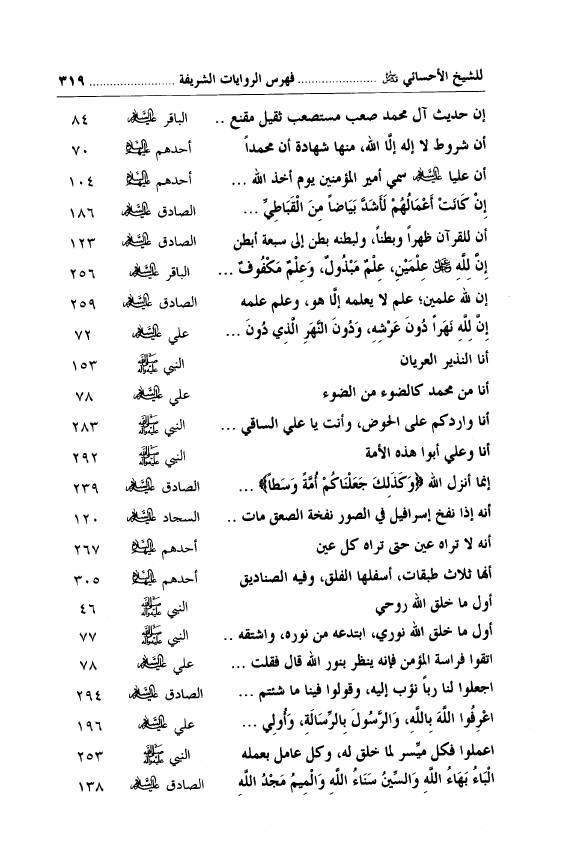 للشيخ الأحسائي قدس سره ........................ فهرس الروايات الشريفة ......................... ٣١٩
إن حديث آل محمد صعب مستصعب ثقيل مقنع .. الباقر عليه السلام ٨٤
أن شروط لا إله إلَّا الله، منها شهادة أن محمداً أحدهم عليهم السلام ٧٠
أن عليا عليه السلام سمي أمير المؤمنين يوم أخذ الله ... أحدهم عليهم السلام ١٠٤
إِنْ كَانَتْ أَعْمَالُهُمْ لَأَشَدَّ بَيَاضاً مِنَ الْقَبَاطِيِّ ... الصادق عليه السلام ١٨٦
أن للقرآن ظهراً وبطناً، ولبطنه بطن إلى سبعة أبطن الصادق عليه السلام ١٢٣
إِنَّ لِلَّهِ عِلْمَيْنِ، عِلْمٌ مَبْذُولٌ، وَعِلْمٌ مَكْفُوفٌ ... الباقر عليه السلام ٢٥٦
إن لله علمين؛ علم لا يعلمه إلَّا هو، وعلم علمه الصادق عليه السلام ٢٥٩
إِنَّ لِلَّهِ نَهَراً دُونَ عَرْشِهِ، وَدُونَ النَّهَرِ الَّذِي دُونَ ... علي عليه السلام ٧٢
أنا النذير العريان النبي صلى الله عليه وآله ١٥٣
أنا من محمد كالضوء من الضوء علي عليه السلام ٧٨
أنا واردكم على الحوض، وأنت يا علي الساقي ... النبي صلى الله عليه وآله ٢٨٣
أنا وعلي أبوا هذه الأمة النبي صلى الله عليه وآله ٢٩٢
إنما أنزل الله ﴿وَكَذَلِكَ جَعَلْنَاكُمْ أُمَّةً وَسَطاً﴾ ... الصادق عليه السلام ٢٣٩
أنه إذا نفخ إسرافيل في الصور نفخة الصعق مات .. السجاد عليه السلام ١٢٠
أنه لا تراه عين حتى تراه كل عين أحدهم عليهم السلام ٢٦٧
أنها ثلاث طبقات، أسفلها الفلق، وفيه الصناديق أحدهم عليهم السلام ٣٠٥
أول ما خلق الله روحي النبي صلى الله عليه وآله ٤٦
أول ما خلق الله نوري، ابتدعه من نوره، واشتقه .. النبي صلى الله عليه وآله ٧٧
اتقوا فراسة المؤمن فإنه ينظر بنور الله قال فقلت ... علي عليه السلام ٧٨
اجعلوا لنا رباً نؤب إليه، وقولوا فينا ما شئتم ... الصادق عليه السلام ٢٩٤
اعْرِفُوا اللَّهَ بِاللَّهِ، وَالرَّسُولَ بِالرِّسَالَةِ، وَأُولِي ... علي عليه السلام ١٩٦
اعملوا فكل ميُسر لما خلق له، وكل عامل بعمله النبي صلى الله عليه وآله ٢٥٣
الْبَاءُ بَهَاءُ اللَّهِ وَالسِّينُ سَنَاءُ اللَّهِ وَالْمِيمُ مَجْدُ اللَّهِ الصادق عليه السلام ١٣٨